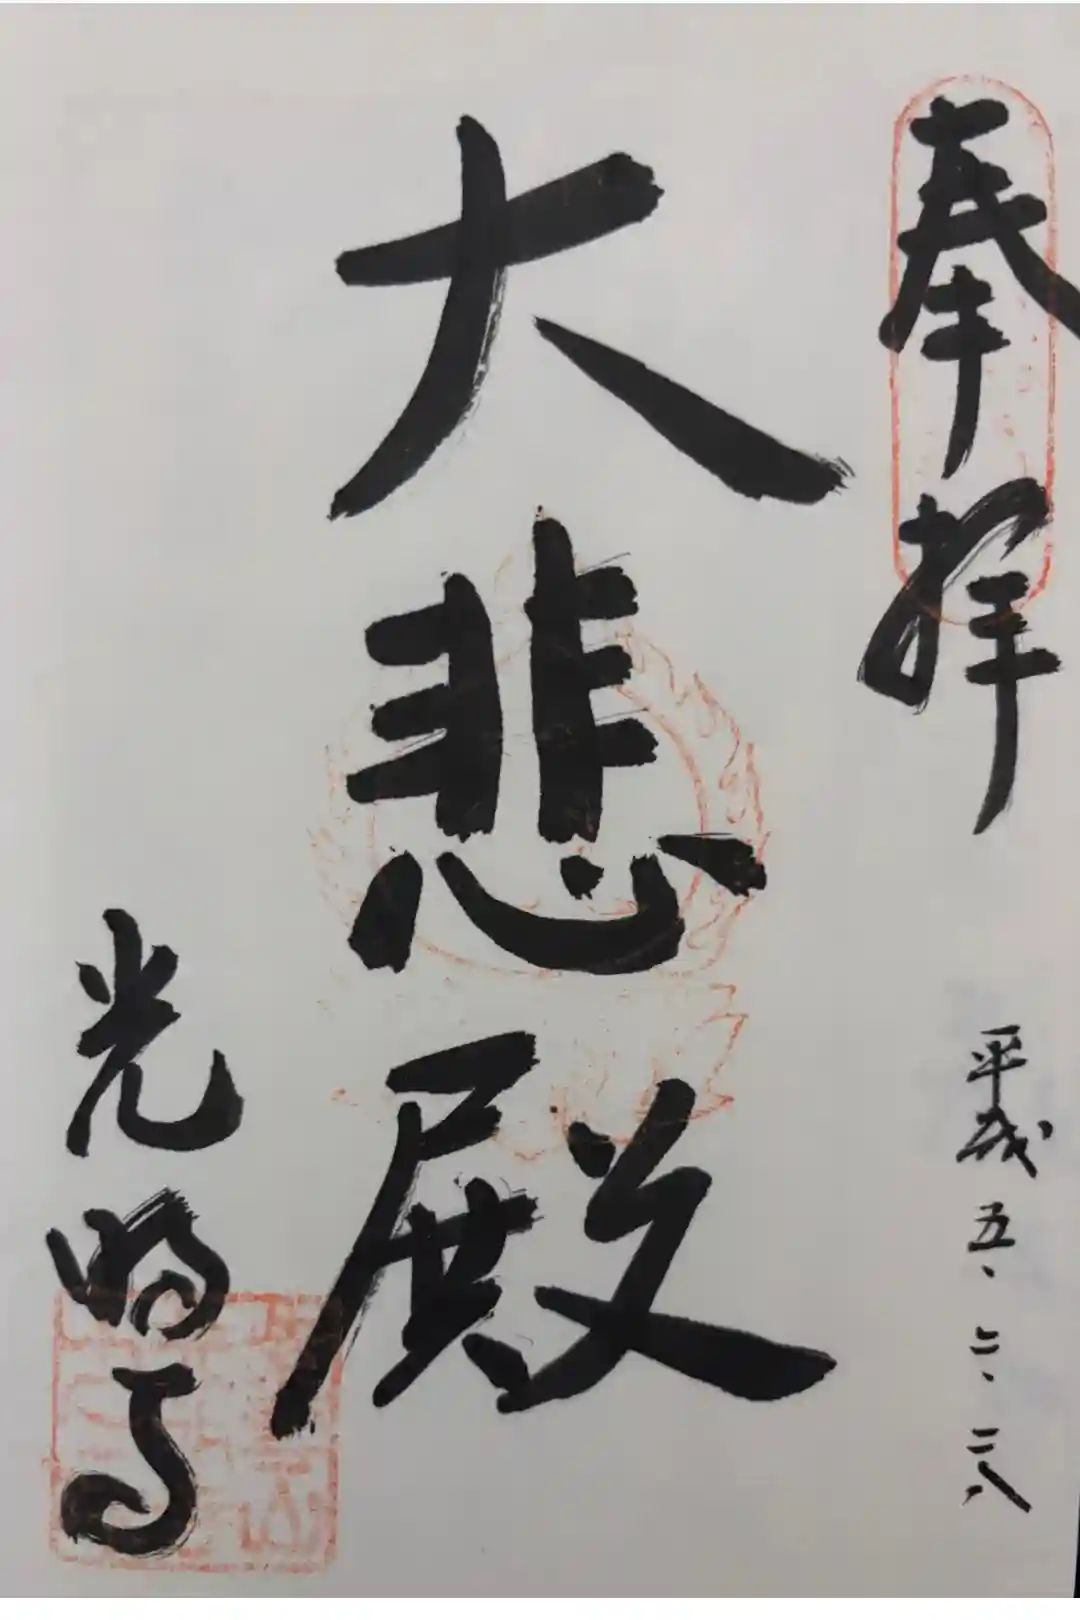 奉拝
平成五、二、二八
大悲殿
光明寺